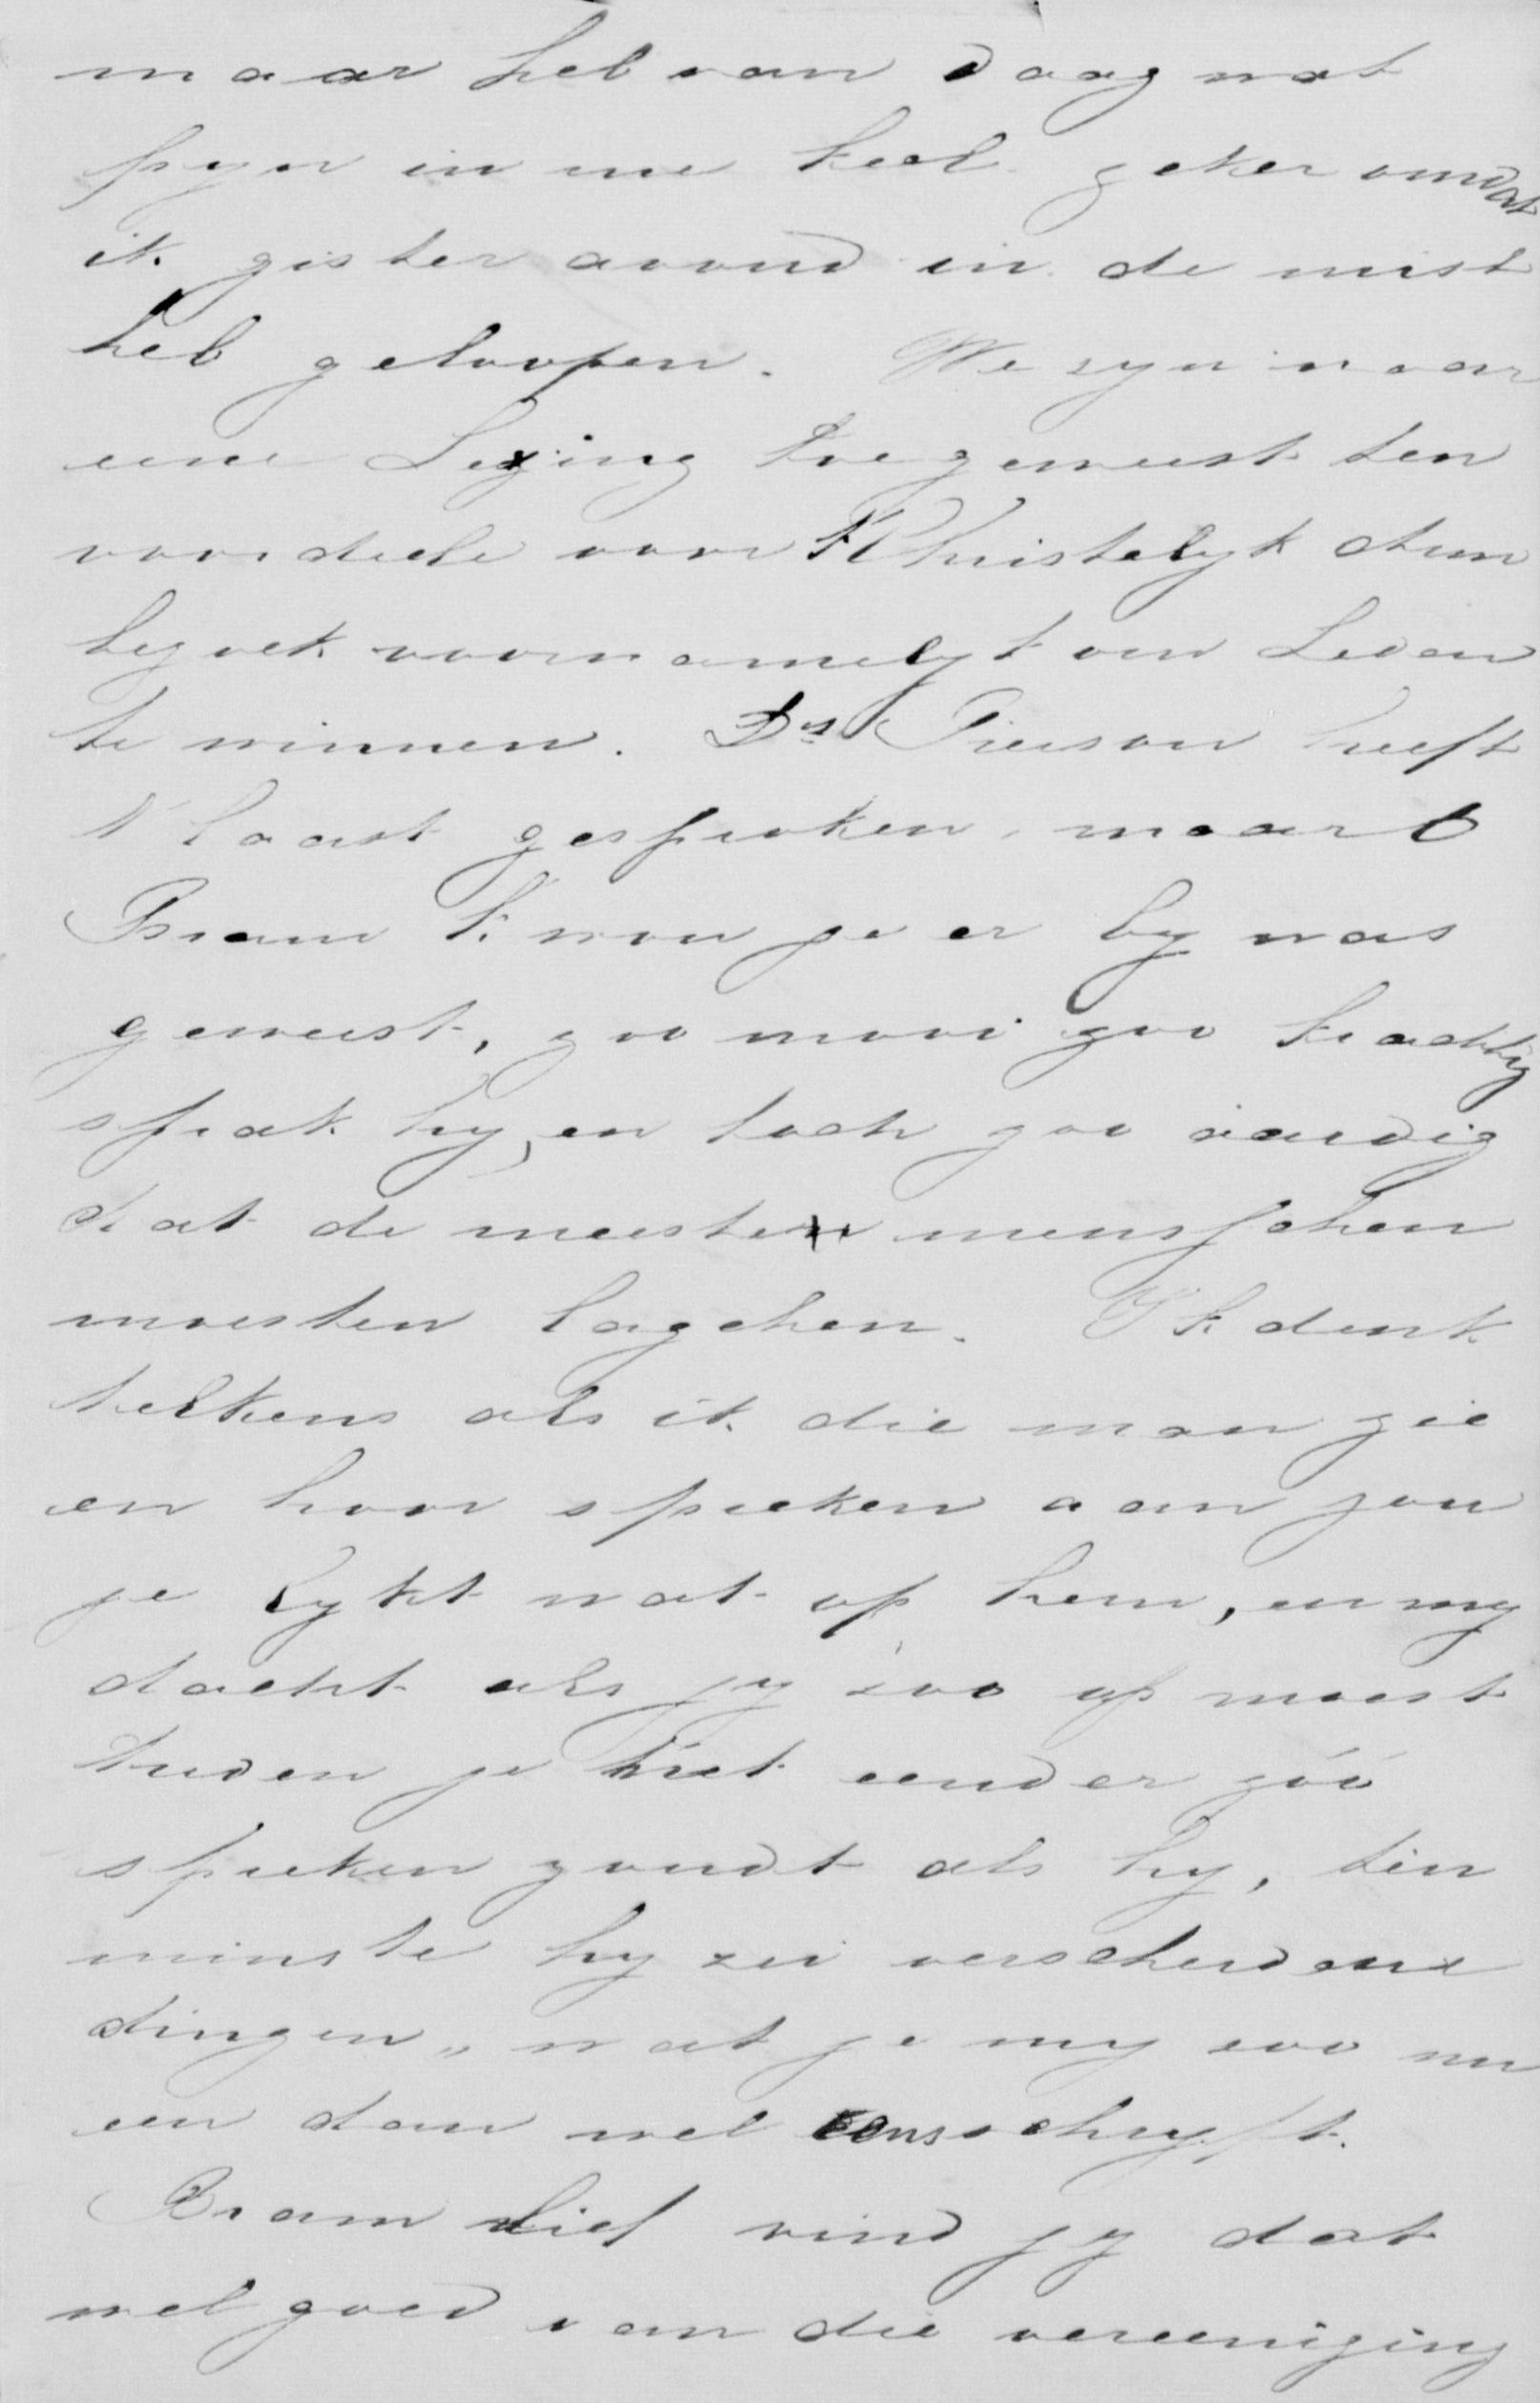 maar heb van daag wat
pyn in me keel zeker omdat
ik gister avond in de mist
heb geloopen. We zyn naar
eene Lezing toe geweest ten
voordeele voor 't Christelyk dum
bezoek voornamelyk om Leden
te winnen. Ds Pierson heeft
't laast gesproken, maar O
Bram k wou je er by was
geweest, zoo mooi zoo krachtig
sprak hy, en toch zoo aardig
dat de meeste menschen
moesten lagchen. Ik denk
telkens als ik die man zie
en hoor spreken aan jou
je lykt wat op hem, en my
dacht als jy zoo op moest
treden je net eender zóó
spreken zoudt als hy, ten
minste hy zei verscheidene
dingen, wat je my zoo nu
en dan wel eens schryft.
Bram lief vind jy dat
wel goed van die vereeniging